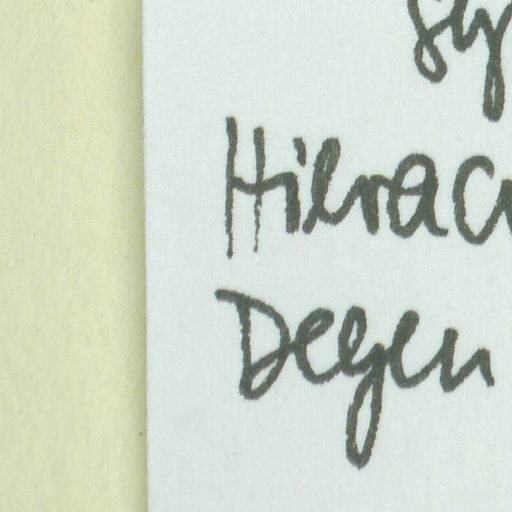 Hierac
Degen